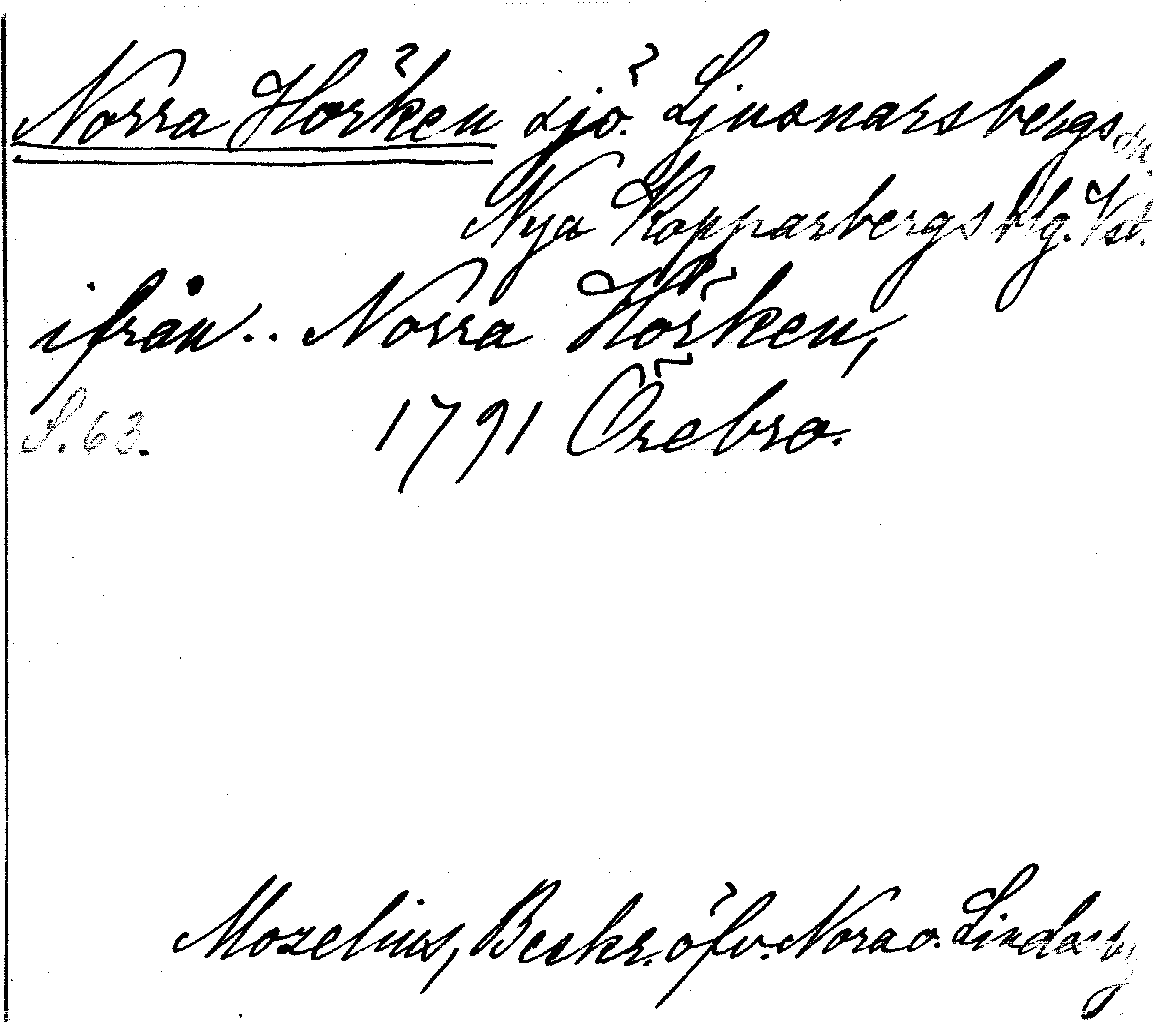 Norra Hörken sjö. Ljusnarsbergs sn.
Nya Kopparbergs blg. Vstl.
ifrån.. Norra Hörken,
S. 63. 1791 Örebro.
Mozelius, Beskr. öfv. Nora o. Lindesby